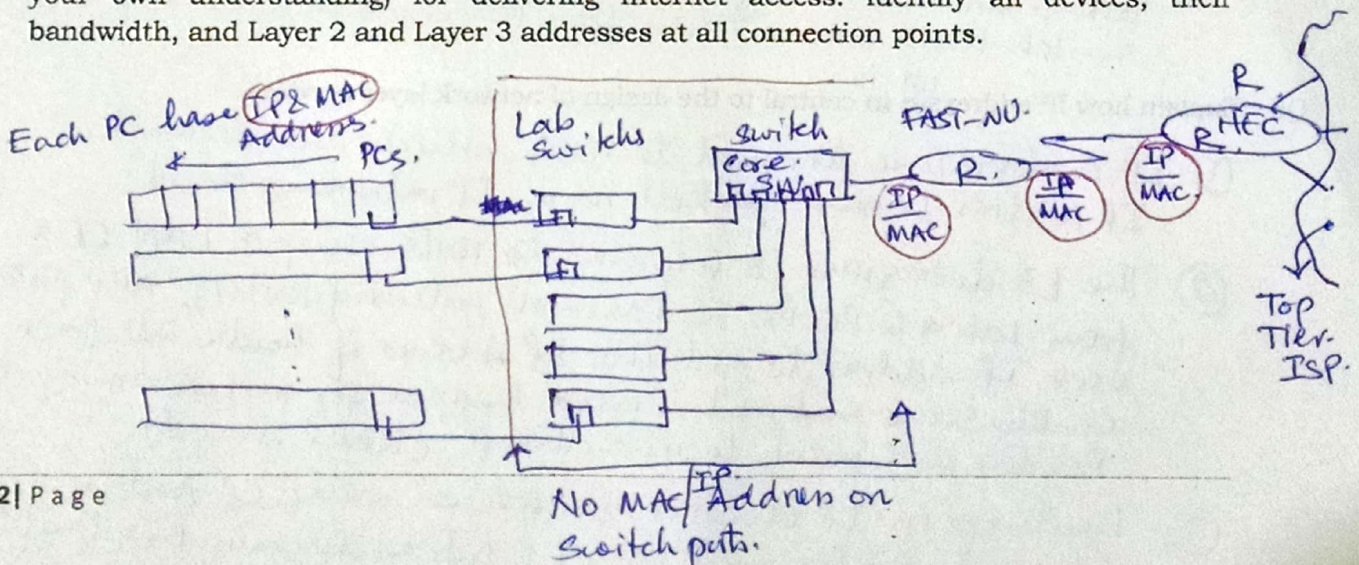 bandwidth, and Layer 2 and Layer 3 addresses at all connection points.
Each PC have IP & MAC
Address.
PCs.
Lab
Switchs
Switch
Core.
SW
FAST-NU.
R.
IP
MAC
IP
MAC
IP
MAC
R
R.
HEC
Top
Tier.
ISP.
2| Page
No MAC/IP Address on
Switch ports.